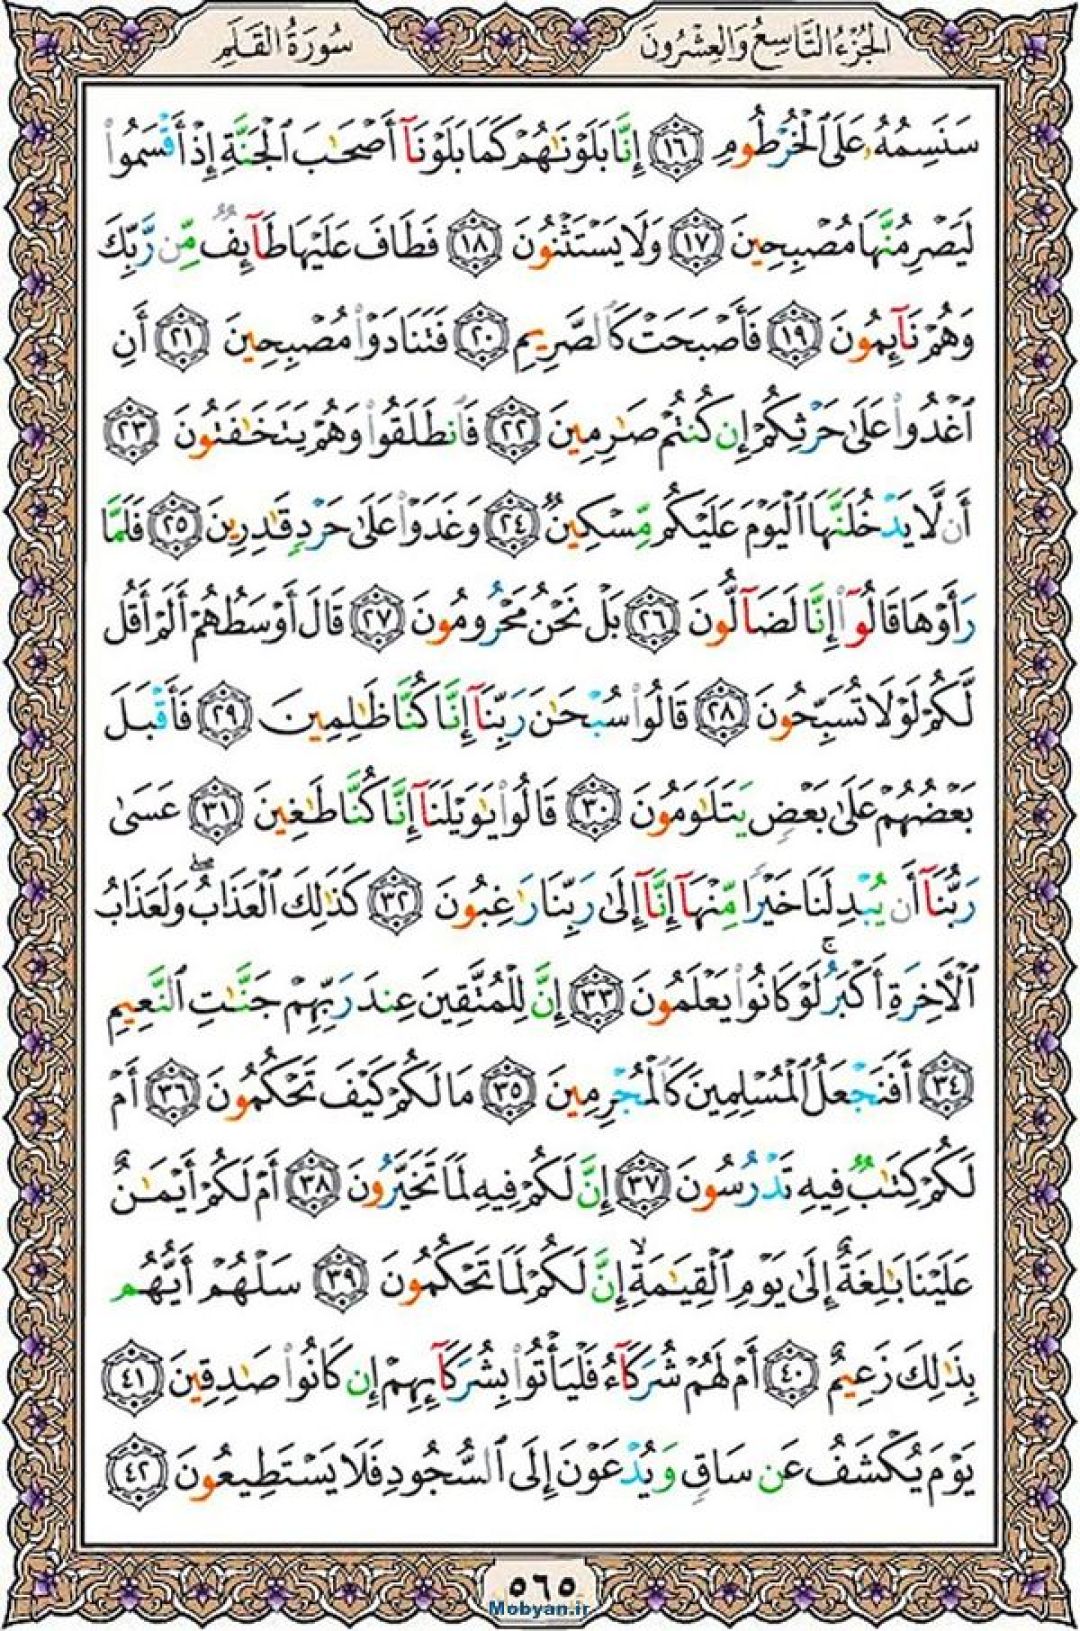 الجُزْءُ التَّاسِعُ وَالعِشْرُونَ
سُورَةُ القَلَمِ
سَنَسِمُهُۥ عَلَى ٱلْخُرْطُومِ ١٦ إِنَّا بَلَوْنَٰهُمْ كَمَا بَلَوْنَآ أَصْحَٰبَ ٱلْجَنَّةِ إِذْ أَقْسَمُوا۟
لَيَصْرِمُنَّهَا مُصْبِحِينَ ١٧ وَلَا يَسْتَثْنُونَ ١٨ فَطَافَ عَلَيْهَا طَآئِفٌ مِّن رَّبِّكَ
وَهُمْ نَآئِمُونَ ١٩ فَأَصْبَحَتْ كَٱلصَّرِيمِ ٢٠ فَتَنَادَوْا۟ مُصْبِحِينَ ٢١ أَنِ
ٱغْدُوا۟ عَلَىٰ حَرْثِكُمْ إِن كُنتُمْ صَٰرِمِينَ ٢٢ فَٱنطَلَقُوا۟ وَهُمْ يَتَخَٰفَتُونَ ٢٣
أَن لَّا يَدْخُلَنَّهَا ٱلْيَوْمَ عَلَيْكُم مِّسْكِينٌ ٢٤ وَغَدَوْا۟ عَلَىٰ حَرْدٍ قَٰدِرِينَ ٢٥ فَلَمَّا
رَأَوْهَا قَالُوٓا۟ إِنَّا لَضَآلُّونَ ٢٦ بَلْ نَحْنُ مَحْرُومُونَ ٢٧ قَالَ أَوْسَطُهُمْ أَلَمْ أَقُل
لَّكُمْ لَوْلَا تُسَبِّحُونَ ٢٨ قَالُوا۟ سُبْحَٰنَ رَبِّنَآ إِنَّا كُنَّا ظَٰلِمِينَ ٢٩ فَأَقْبَلَ
بَعْضُهُمْ عَلَىٰ بَعْضٍ يَتَلَٰوَمُونَ ٣٠ قَالُوا۟ يَٰوَيْلَنَآ إِنَّا كُنَّا طَٰغِينَ ٣١ عَسَىٰ
رَبُّنَآ أَن يُبْدِلَنَا خَيْرًا مِّنْهَآ إِنَّآ إِلَىٰ رَبِّنَا رَٰغِبُونَ ٣٢ كَذَٰلِكَ ٱلْعَذَابُ ۖ وَلَعَذَابُ
ٱلْأَخِرَةِ أَكْبَرُ ۚ لَوْ كَانُوا۟ يَعْلَمُونَ ٣٣ إِنَّ لِلْمُتَّقِينَ عِندَ رَبِّهِمْ جَنَّٰتِ ٱلنَّعِيمِ
٣٤ أَفَنَجْعَلُ ٱلْمُسْلِمِينَ كَٱلْمُجْرِمِينَ ٣٥ مَا لَكُمْ كَيْفَ تَحْكُمُونَ ٣٦ أَمْ
لَكُمْ كِتَٰبٌ فِيهِ تَدْرُسُونَ ٣٧ إِنَّ لَكُمْ فِيهِ لَمَا تَخَيَّرُونَ ٣٨ أَمْ لَكُمْ أَيْمَٰنٌ
عَلَيْنَا بَٰلِغَةٌ إِلَىٰ يَوْمِ ٱلْقِيَٰمَةِ ۙ إِنَّ لَكُمْ لَمَا تَحْكُمُونَ ٣٩ سَلْهُمْ أَيُّهُم
بِذَٰلِكَ زَعِيمٌ ٤٠ أَمْ لَهُمْ شُرَكَآءُ فَلْيَأْتُوا۟ بِشُرَكَآئِهِمْ إِن كَانُوا۟ صَٰدِقِينَ ٤١
يَوْمَ يُكْشَفُ عَن سَاقٍ وَيُدْعَوْنَ إِلَى ٱلسُّجُودِ فَلَا يَسْتَطِيعُونَ ٤٢
٥٦٥
Mobyan.ir